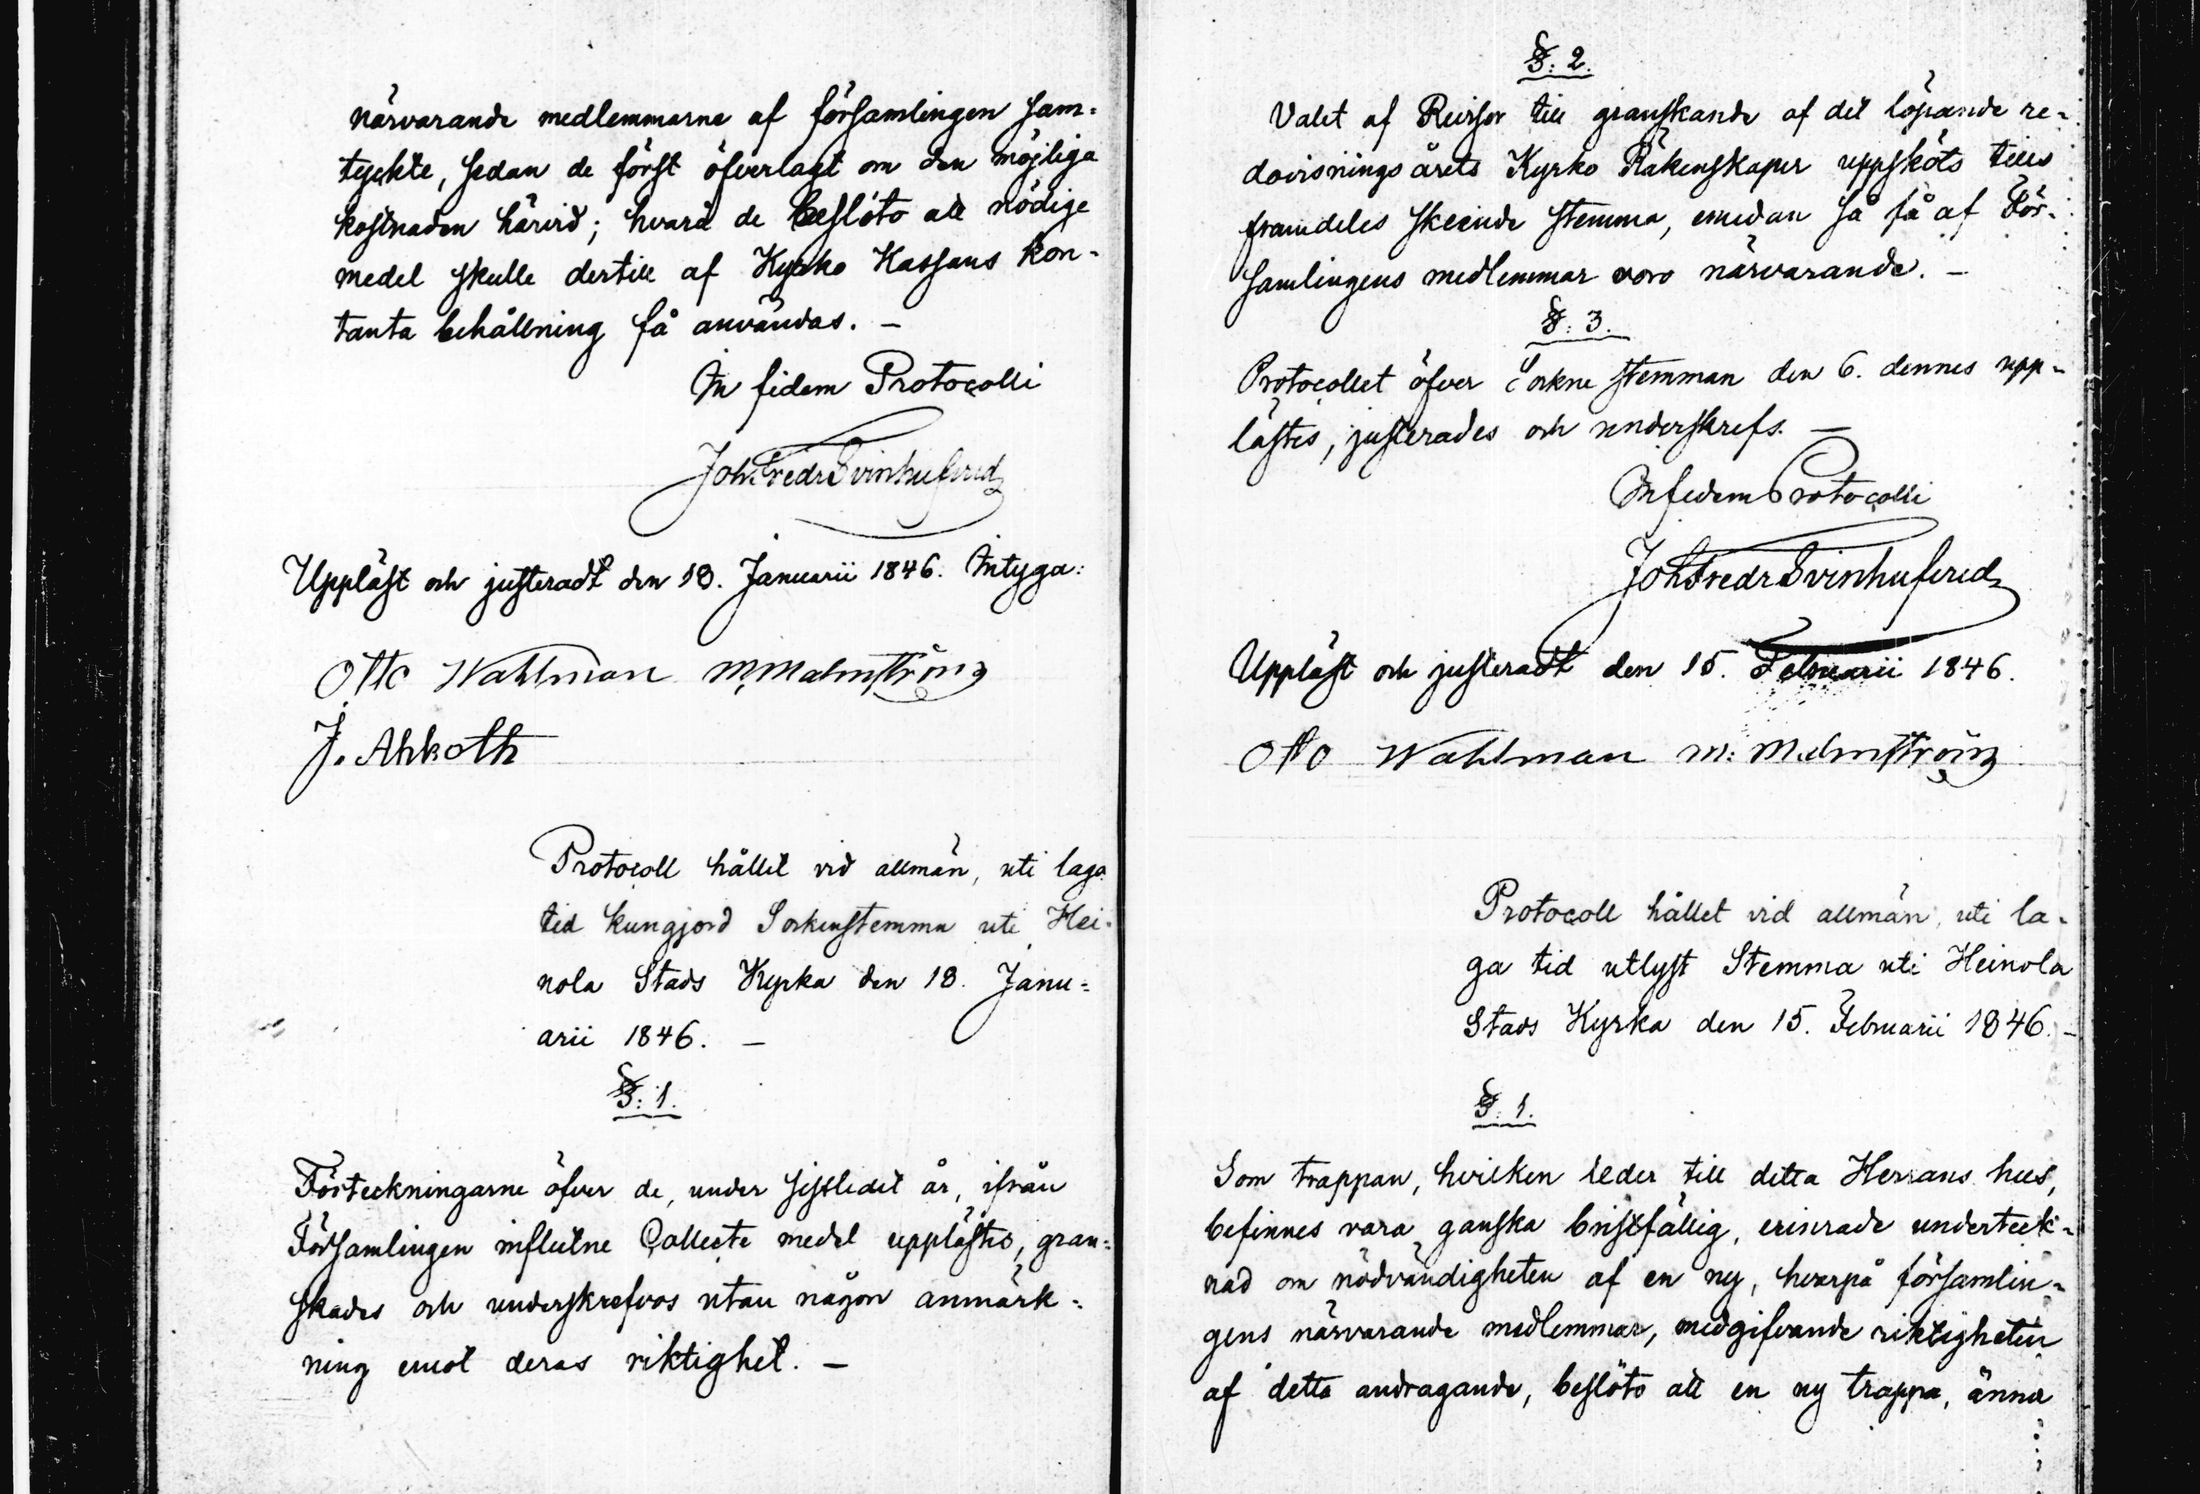 närvarande medlemmarne af församlingen sam-
tyckte, sedan de först öfverlagt om den möjliga
kostnaden härvid; hvarå de beslöto att nödige
medel skulle dertill af Kyrko Kassans kon-
tanta behållning få användas. –
In fidem Protocolli
Joh. Fredr Svinhufvud
Uppläst och justeradt den 18. Januarii 1846. Intyga:
Otto Wahlman M. Malmström
J. Ahkoth
Protocoll hållet vid allmän, uti laga
tid kungjord Sockenstemma uti Hei-
nola Stads Kyrka den 18. Janu-
arii 1846. –
§: 1.
Förteckningarne öfver de, under sistledit år, ifrån
Församlingen influtne Collecte medel upplästes, gran-
skades och underskrefvos utan någon anmärk-
ning emot deras riktighet. –
§: 2.
Valet af Revisor till granskande af det löpande re-
dovisnings årets Kyrko Räkenskaper uppsköts tills
framdeles skeende stemma, emedan så få af För-
samlingens medlemmar voro närvarande. –
§: 3.
Protocollet öfver Sockne stemman den 6. dennes upp-
lästes, justerades och underskrefs. –
In fidem Protocolli
Joh Fredr Svinhufvud
Uppläst och justeradt den 15. Februarii 1846.
Otto Wahlman M: Malmström
Protocoll hållet vid allmän, uti la-
ga tid utlyst Stemma uti Heinola
Stads Kyrka den 15. Februarii 1846. –
§. 1.
Som trappan, hvilken leder till detta Herrans hus,
befinnes vara ganska bristfällig, erinrade underteck-
nad om nödvändigheten af en ny, hvarpå församlin-
gens närvarande medlemmar, medgifvande riktigheten
af detta andragande, beslöto att en ny trappa, ännu